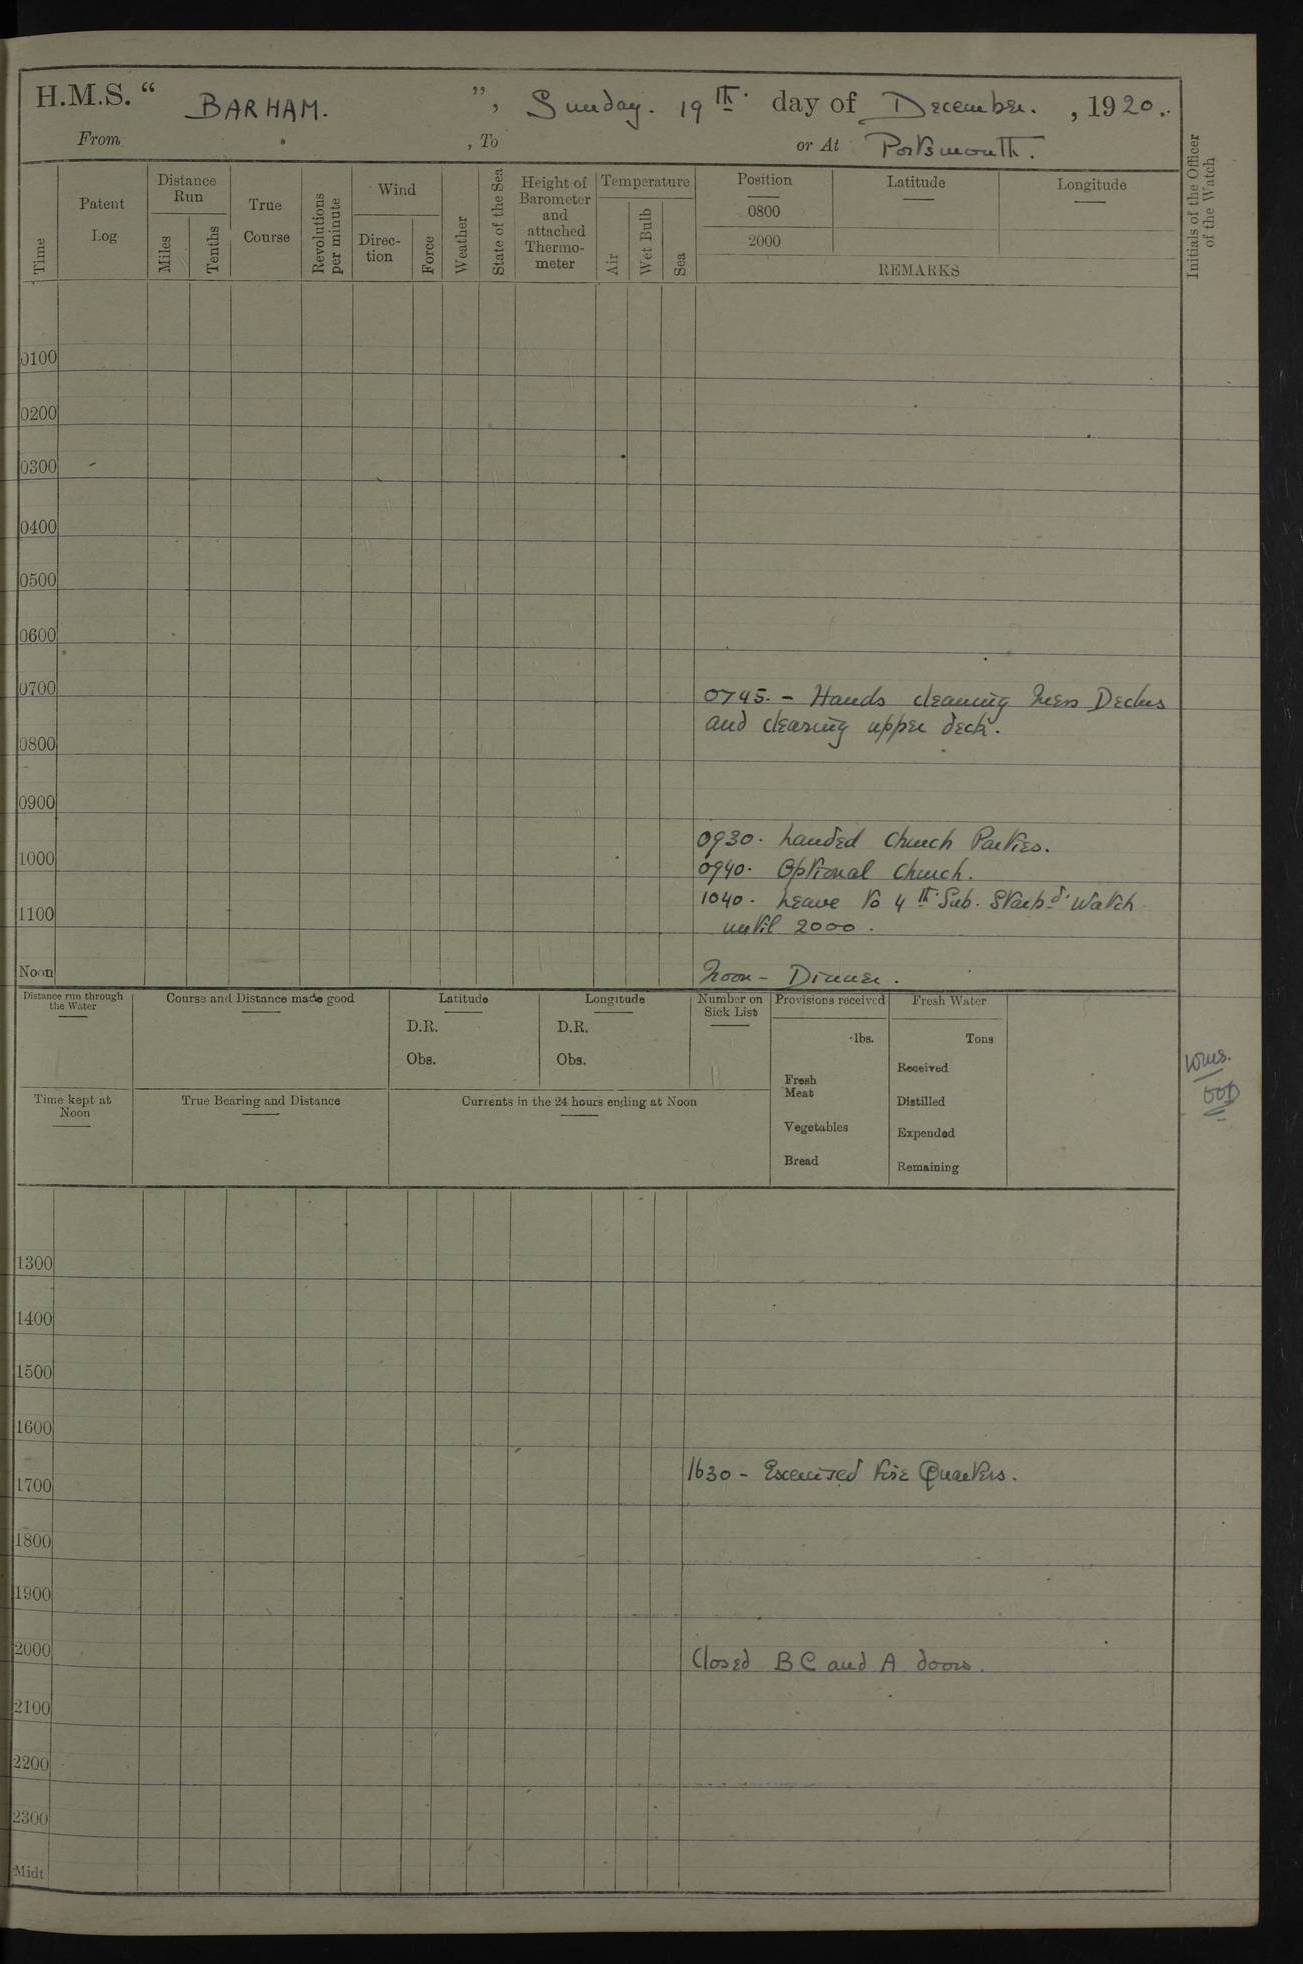 H.M.S. “ BARHAM. ”, Sunday. 19th. day of December. , 1920.
From , To or At Portsmouth.
Time
Patent Log
Distance Run
Miles
Tenths
True Course
Revolutions per minute
Wind
Direc-tion
Force
Weather
State of the Sea
Height of Barometer and attached Thermo-meter
Temperature
Air
Wet Bulb
Sea
Position Latitude Longitude
0800
2000
REMARKS
Initials of the Officer of the Watch
0100
0200
0300
0400
0500
0600
0700
0745. - Hands cleaning Mess Decks
and clearing upper deck.
0800
0900
0930. Landed Church Parties.
1000
0940. Optional Church.
1040. Leave to 4th. Sub. Starbd. Watch
1100
until 2000.
Noon
Noon - Dinner.
Distance run through the Water
Course and Distance made good
Latitude
D.R.
Obs.
Longitude
D.R.
Obs.
Number on Sick List
Provisions received
lbs.
Fresh Meat
Vegetables
Bread
Fresh Water
Tons
Received
Distilled
Expended
Remaining
Time kept at Noon
True Bearing and Distance
Currents in the 24 hours ending at Noon
OOD
1300
1400
1500
1600
1630 - Exercised Fire Quarters.
1700
1800
1900
2000
Closed B C and A doors.
2100
2200
2300
Midt